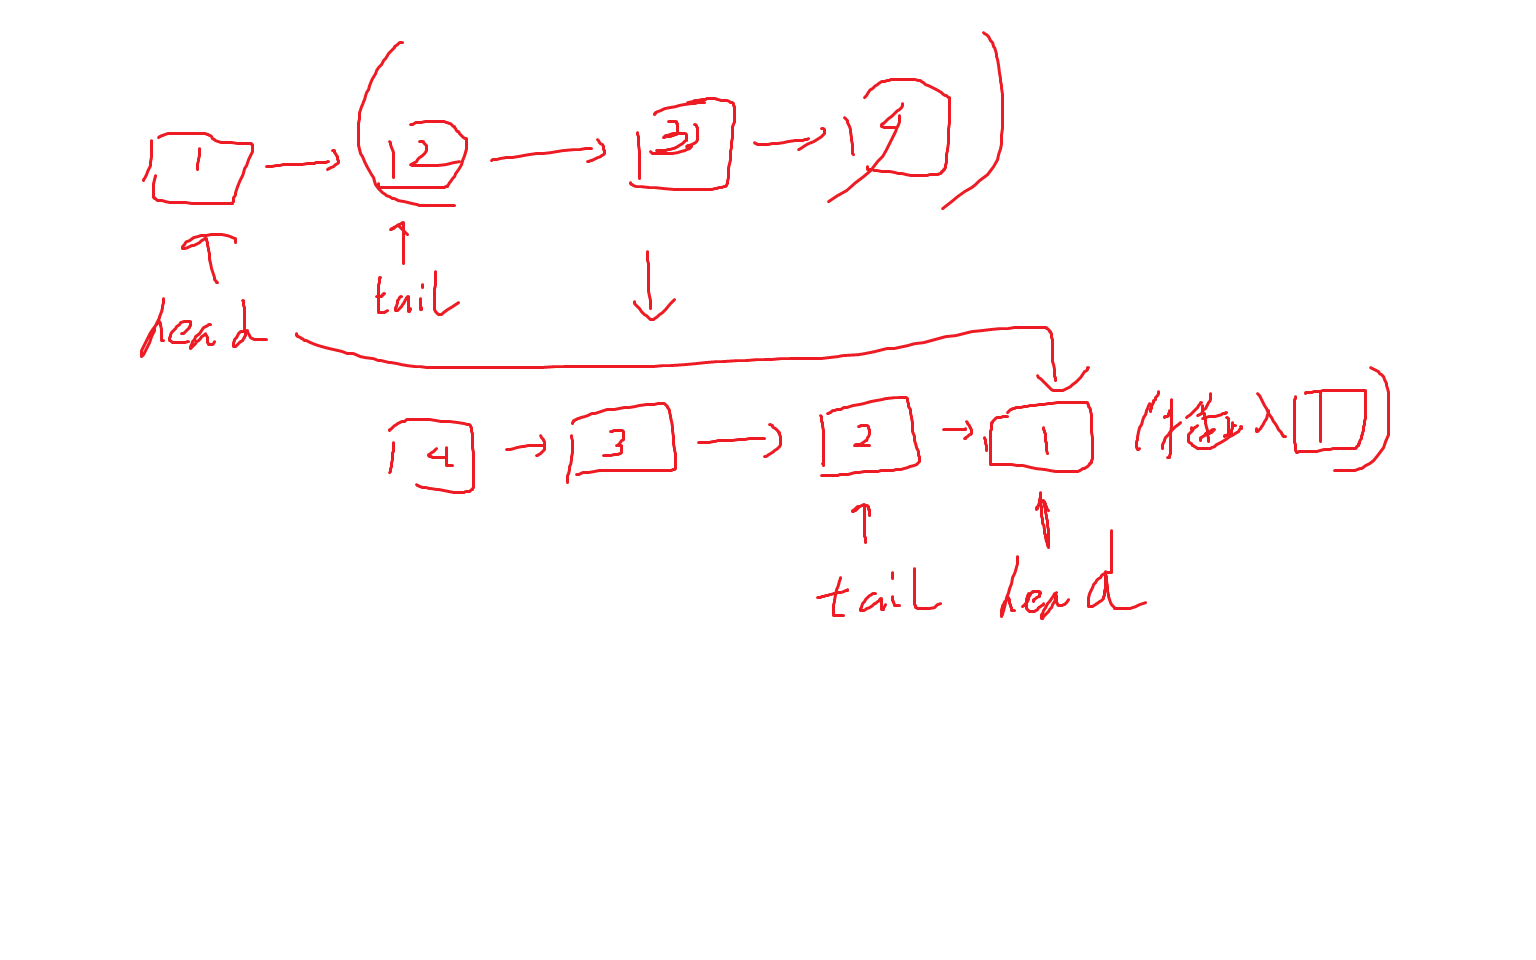 1 → ( 2 → 3 → 4 )
head tail
↓
4 → 3 → 2 → 1 (插入1)
tail head